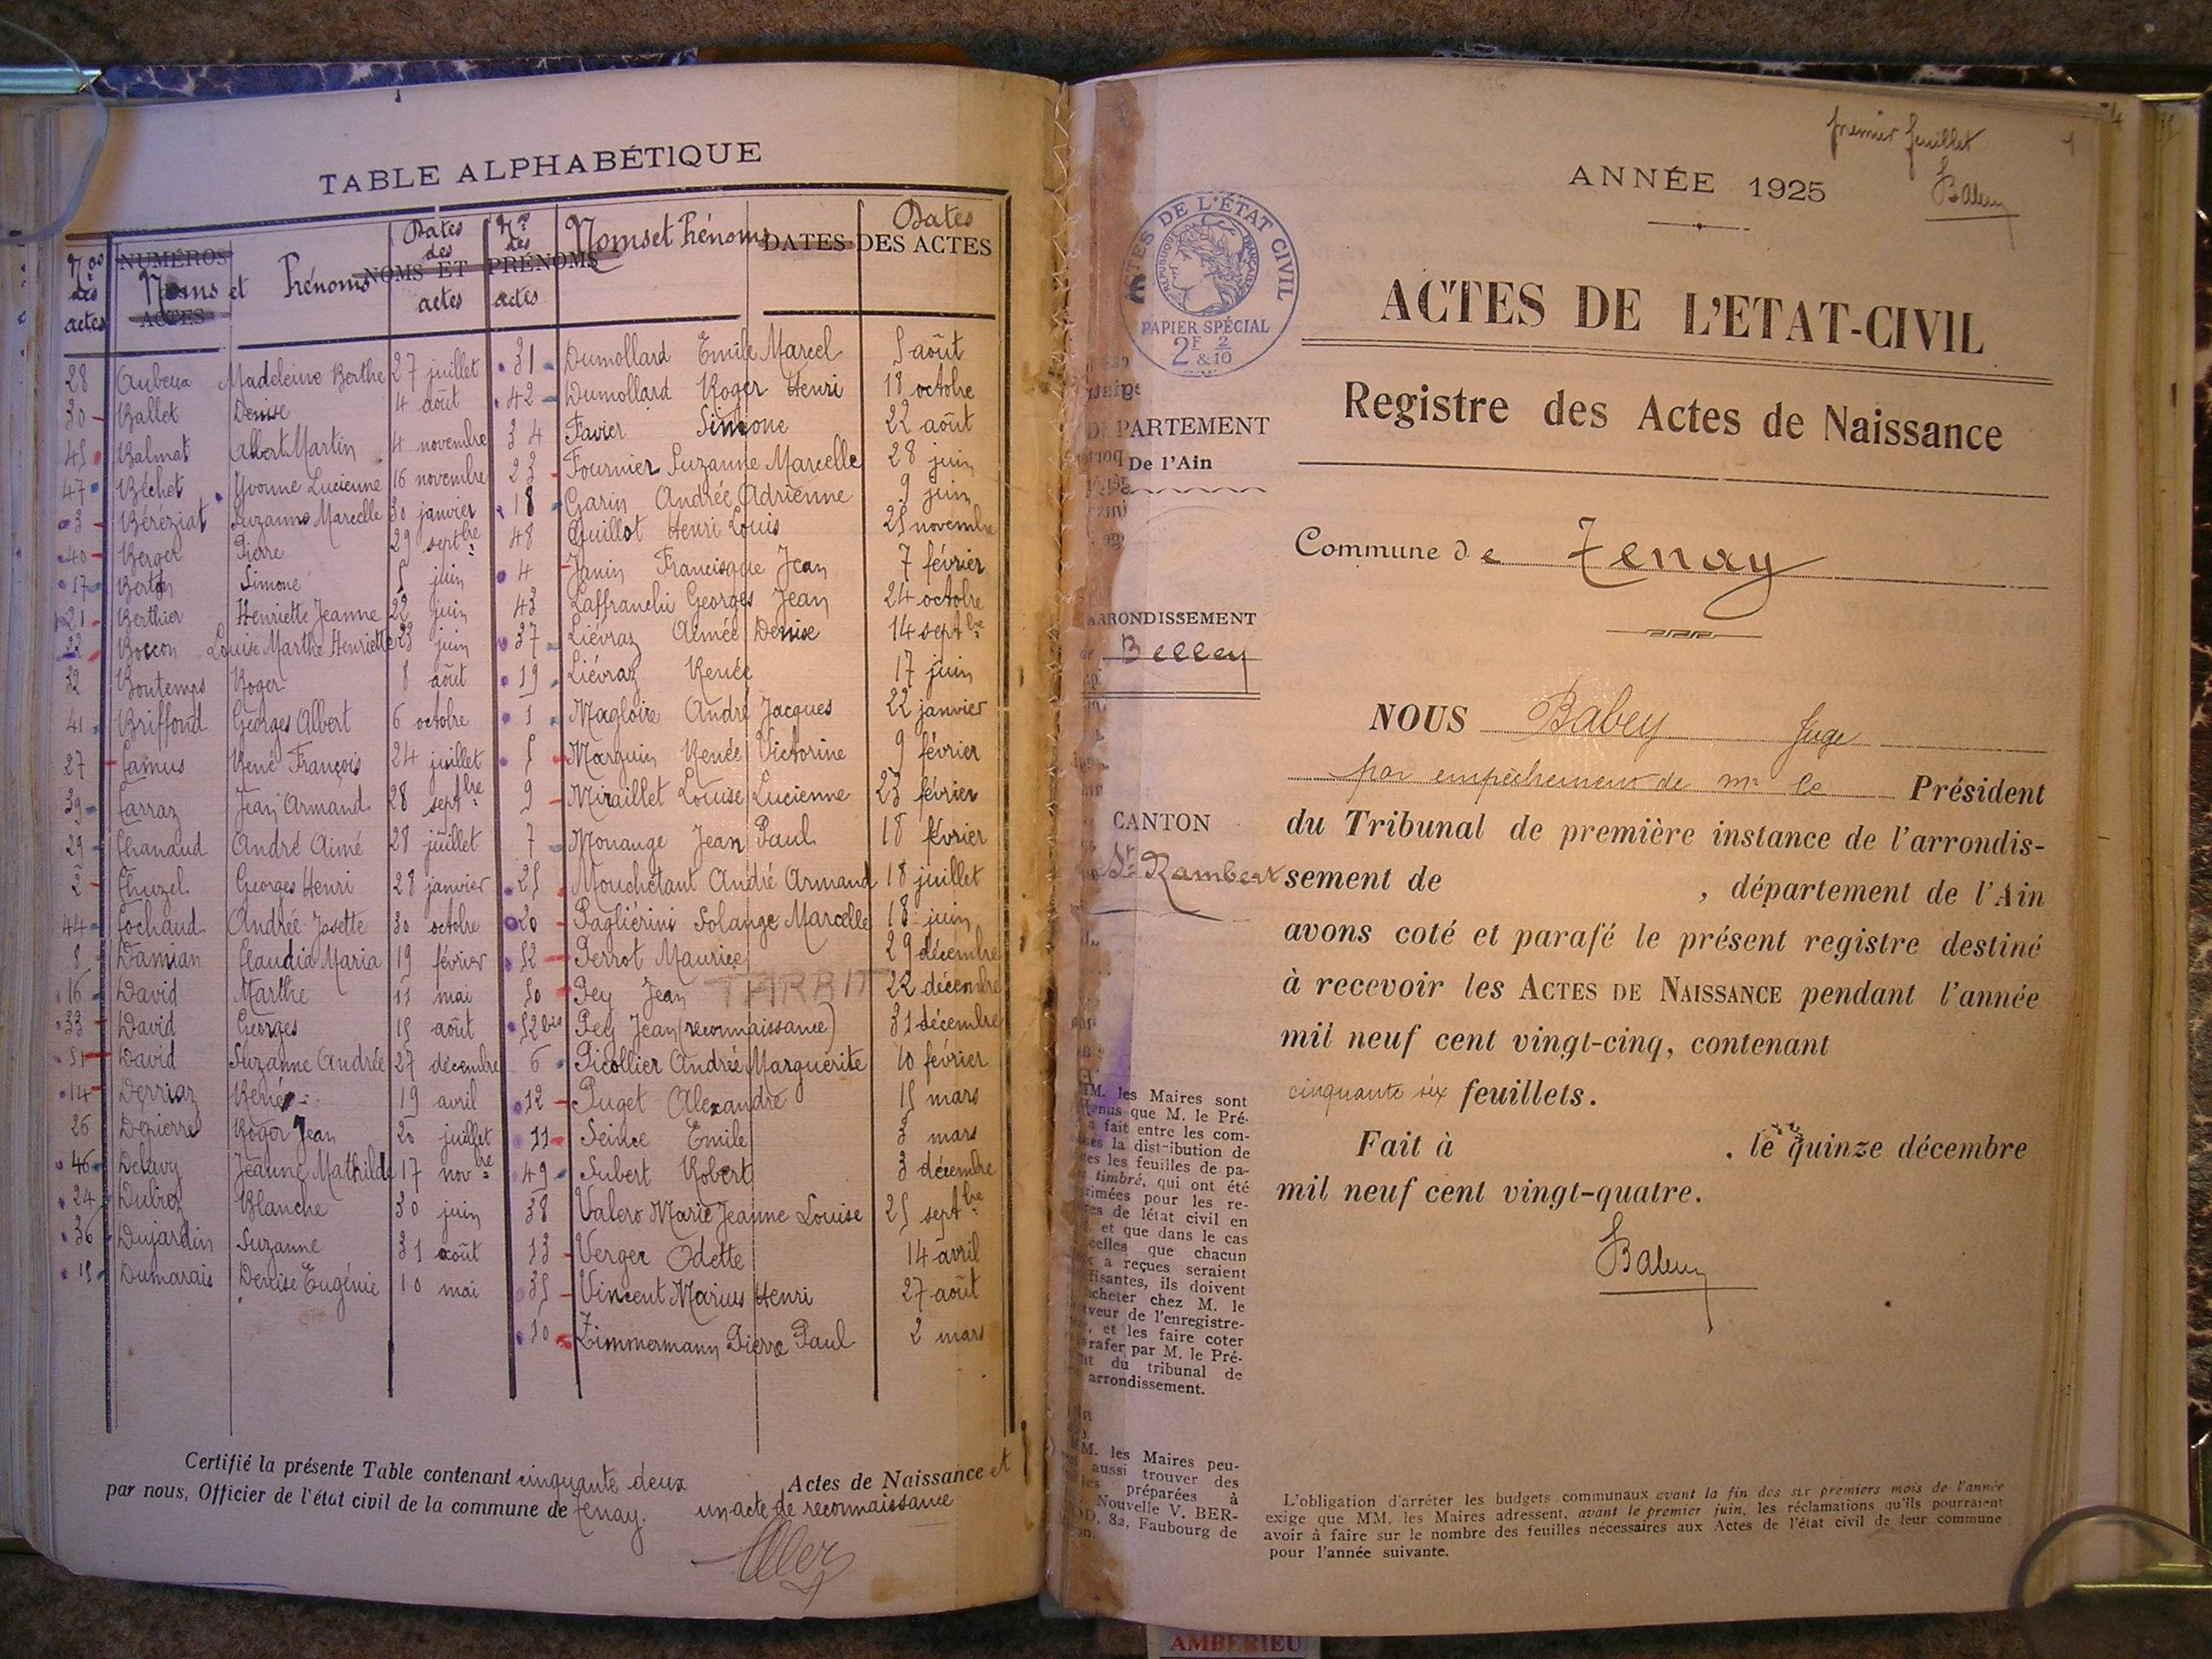 TABLE ALPHABÉTIQUE
Nos des actes NUMÉROS ACTES Noms et Prénoms NOMS ET PRÉNOMS Dates des actes Nos des actes Noms et Prénoms DATES DES ACTES Dates
28 Aubeux Madeleine Berthe 27 juillet 31 Dumollard Emile Marcel 5 août
30 Ballet Denise 4 août 42 Dumollard Roger Henri 18 octobre
45 Balmat Albert Martin 4 novembre 34 Favier Simone 22 août
47 Béchet Yvonne Lucienne 16 novembre 23 Fournier Suzanne Marcelle 28 juin
3 Béréziat Suzanne Marcelle 30 janvier 18 Garin Andrée Adrienne 9 juin
40 Berger Pierre 29 septbre 48 Guillot Henri Louis 25 novembre
17 Berton Simone 5 juin 4 Janin Francisque Jean 7 février
21 Berthier Henriette Jeanne 22 juin 43 Laffranchi Georges Jean 24 octobre
22 Boccon Louise Marthe Henriette 23 juin 37 Liévraz Aimée Denise 14 septbre
32 Bontemps Roger 8 août 19 Liévraz Renée 17 juin
41 Briffond Georges Albert 6 octobre 1 Magloire André Jacques 22 janvier
27 Camus René François 24 juillet 5 Marguin Renée Victorine 9 février
39 Carraz Jean Armand 28 septbre 9 Miraillet Louise Lucienne 23 février
29 Chanaud André Aimé 28 juillet 7 Monange Jean Paul 18 février
2 Chuzel Georges Henri 28 janvier 25 Mouchetant André Armand 18 juillet
44 Cochaud Andrée Josette 30 octobre 20 Pagliérini Solange Marcelle 18 juin
8 Damian Claudia Maria 19 février 52 Perrot Maurice 29 décembre
16 David Marthe 11 mai 50 Pey Jean TARRIT 22 décembre
33 David Georges 15 août 52 bis Pey Jean (reconnaissance) 31 décembre
51 David Suzanne Andrée 27 décembre 6 Picollier Andrée Marguerite 10 février
14 Derriaz René 19 avril 12 Puget Alexandre 15 mars
26 Depierre Roger Jean 20 juillet 11 Seince Emile 3 mars
46 Delavy Jeanne Mathilde 17 novbre 49 Subert Robert 3 décembre
24 Dubiez Blanche 30 juin 38 Valero Marie Jeanne Louise 25 septbre
36 Dujardin Suzanne 31 août 13 Verger Odette 14 avril
15 Dumarais Denise Eugénie 10 mai 35 Vincent Marius Henri 27 août
10 Zimmermann Pierre Paul 2 mars
Certifié la présente Table contenant cinquante deux Actes de Naissance et
par nous, Officier de l'état civil de la commune de Tenay. un acte de reconnaissance
premier feuillet
Babey
1
ANNÉE 1925
ACTES DE L'ÉTAT CIVIL
RÉPUBLIQUE FRANÇAISE
PAPIER SPÉCIAL
2F & 2/10
ACTES DE L'ETAT-CIVIL
Registre des Actes de Naissance
DÉPARTEMENT
De l'Ain
Commune de Tenay
ARRONDISSEMENT
de Belley
NOUS Babey Juge
par empêchement de mr le Président
CANTON
St Rambert
du Tribunal de première instance de l'arrondis-
sement de , département de l'Ain
avons coté et parafé le présent registre destiné
à recevoir les ACTES DE NAISSANCE pendant l'année
mil neuf cent vingt-cinq, contenant
cinquante six feuillets.
Fait à . le quinze décembre
mil neuf cent vingt-quatre.
Babey
MM. les Maires sont
tenus que M. le Pré-
a fait entre les com-
la distribution de
les feuilles de pa-
timbré, qui ont été
primées pour les re-
res de létat civil en
et que dans le cas
celles que chacun
a reçues seraient
fisantes, ils doivent
acheter chez M. le
veur de l'enregistre-
, et les faire coter
parafer par M. le Pré-
du tribunal de
arrondissement.
MM. les Maires peu-
aussi trouver des
les préparées à
Nouvelle V. BER-
OD, 82, Faubourg de
L'obligation d'arrêter les budgets communaux avant la fin des six premiers mois de l'année
exige que MM. les Maires adressent, avant le premier juin, les réclamations qu'ils pourraient
avoir à faire sur le nombre des feuilles nécessaires aux Actes de l'état civil de leur commune
pour l'année suivante.
AMBERIEU